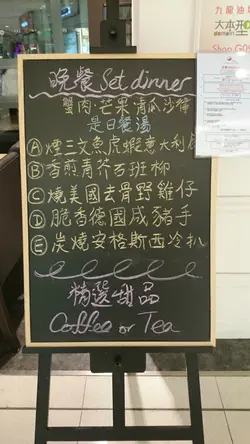 九龍油塘
大本型
domain
晚餐 Set dinner
蟹肉·芒果青瓜沙律
是日餐湯
Ⓐ 煙三文魚虎蝦意大利
Ⓑ 香煎青芥石班柳
Ⓒ 燒美國去骨野雞仔
Ⓓ 脆香德國咸豬手
Ⓔ 炭燒安格斯西冷扒
精選甜品
Coffee or Tea